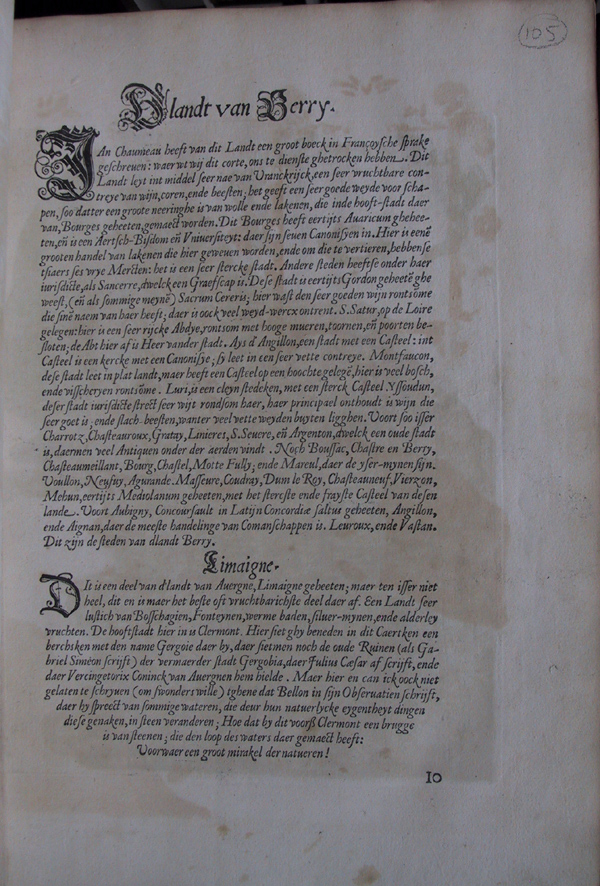 105
Dlandt van Berry.
IAn Chaumeau heeft van dit Landt een groot boeck in Françoysche sprake
geschreuen: waer wt wij dit corte, ons te dienste ghetrocken hebben. Dit
Landt leyt int middel seer nae van Vranckrijck, een seer vruchtbare con-
treye van wijn, coren, ende beesten; het geeft een seer goede weyde voor scha-
pen, soo datter een groote neeringhe is van wolle ende lakenen, die inde hooft-stadt daer
van, Bourges geheeten, gemaect worden. Dit Bourges heeft eertijts Auaricum ghehee-
ten, eñ is een Aertsch-Bisdom eñ Vniuersiteyt: daer sijn seuen Canonisyen in. Hier is eenē
grooten handel van lakenen die hier geweuen worden, ende om die te vertieren, hebben se
tsiaers ses vrye Mercten: het is een seer stercke stadt. Andere steden heeftse onder haer
iurisdictie, als Sancerre, dwelck een Graefscap is. Dese stadt is eertijts Gordon geheetē ghe
weest, (eñ als sommige meynē) Sacrum Cereris; hier wast den seer goeden wijn rontsome
die sinē naem van haer heeft; daer is oock veel weyd-wercx ontrent. S. Satur, op de Loire
gelegen: hier is een seer rijcke Abdye, rontsom met hooge mueren, toornen, eñ poorten be-
sloten; de Abt hier af is Heer vander stadt. Ays d'Angillon, een stadt met een Casteel: int
Casteel is een kercke met een Canonisye; sy leet in een seer vette contreye. Montfaucon,
dese stadt leet in plat landt, maer heeft een Casteel op een hoochte gelegē, hier is veel bosch,
ende visscheryen rontsōme. Luri, is een cleyn stedeken, met een sterck Casteel Yssoudun,
deser stadt iurisdictie strect seer wijt rondsom haer, haer principael onthoudt is wijn die
seer goet is; ende slach-beesten, wanter veel vette weyden buyten ligghen. Voort soo isser
Charrotz, Chasteauroux, Gratay, Linieret, S. Seuere, eñ Argenton, dwelck een oude stadt
is, daermen veel Antiquen onder der aerden vindt. Noch Boussac, Chastre en Berry,
Chasteaumeillant, Bourg, Chastel, Motte Fully; ende Mareul, daer de yser-mynen sijn.
Voullon, Neufuy, Agurande. Masseure, Coudray, Dum le Roy, Chasteauneuf, Vierzon,
Mehun, eertijts Mediolanum geheeten, met het sterckste ende frayste Casteel van desen
lande. Voort Aubigny, Concoursault in Latijn Concordiæ saltus geheeten, Angillon,
ende Aignan, daer de meeste handelinge van Comanschappen is. Leuroux, ende Vastan.
Dit zijn de steden van dlandt Berry.
Limaigne.
DIt is een deel van d'landt van Auergne, Limaigne geheeten; maer ten isser niet
heel, dit en is maer het beste oft vruchtbarichste deel daer af. Een Landt seer
lustich van Bosschagien, Fonteynen, werme baden, siluer-mynen, ende alderley
vruchten. De hooftstadt hier in is Clermont. Hier siet ghy beneden in dit Caertken een
berchsken met den name Gergoie daer by, daer sietmen noch de oude Ruinen (als Ga-
briel Simeon scrijft) der vermaerder stadt Gergobia, daer Julius Cæsar af scrijft, ende
daer Vercingetorix Coninck van Auergnen hem hielde. Maer hier en can ick oock niet
gelaten te schryuen (om swonders wille) tghene dat Bellon in sijn Obseruatien schrijft,
daer hy spreect van sommige wateren, die deur hun natuerlycke eygentheyt dingen
die se genaken, in steen veranderen; Hoe dat by dit voorß Clermont een brugge
is van steenen; die den loop des waters daer gemaect heeft:
Voorwaer een groot mirakel der natueren!
10